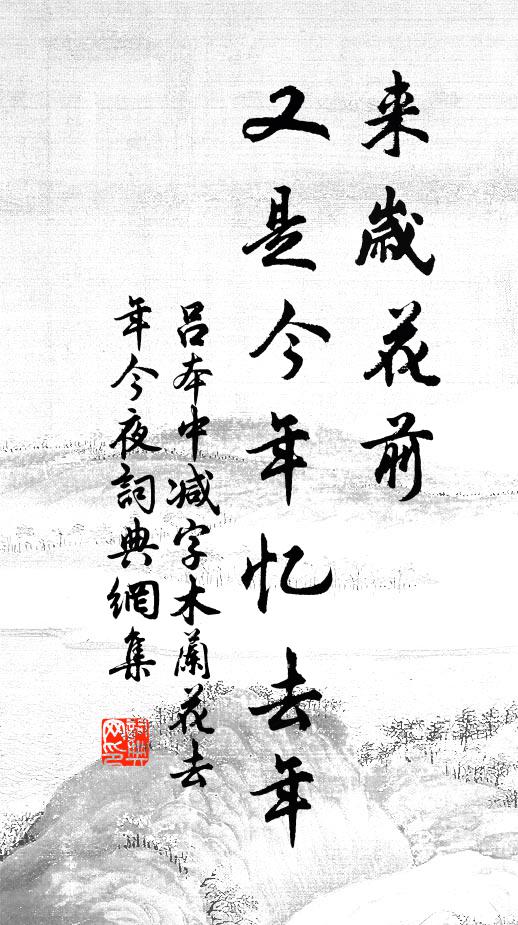 来歲花前
又是今年忆去年
呂本中减字木蘭花去
年今夜詞典網集